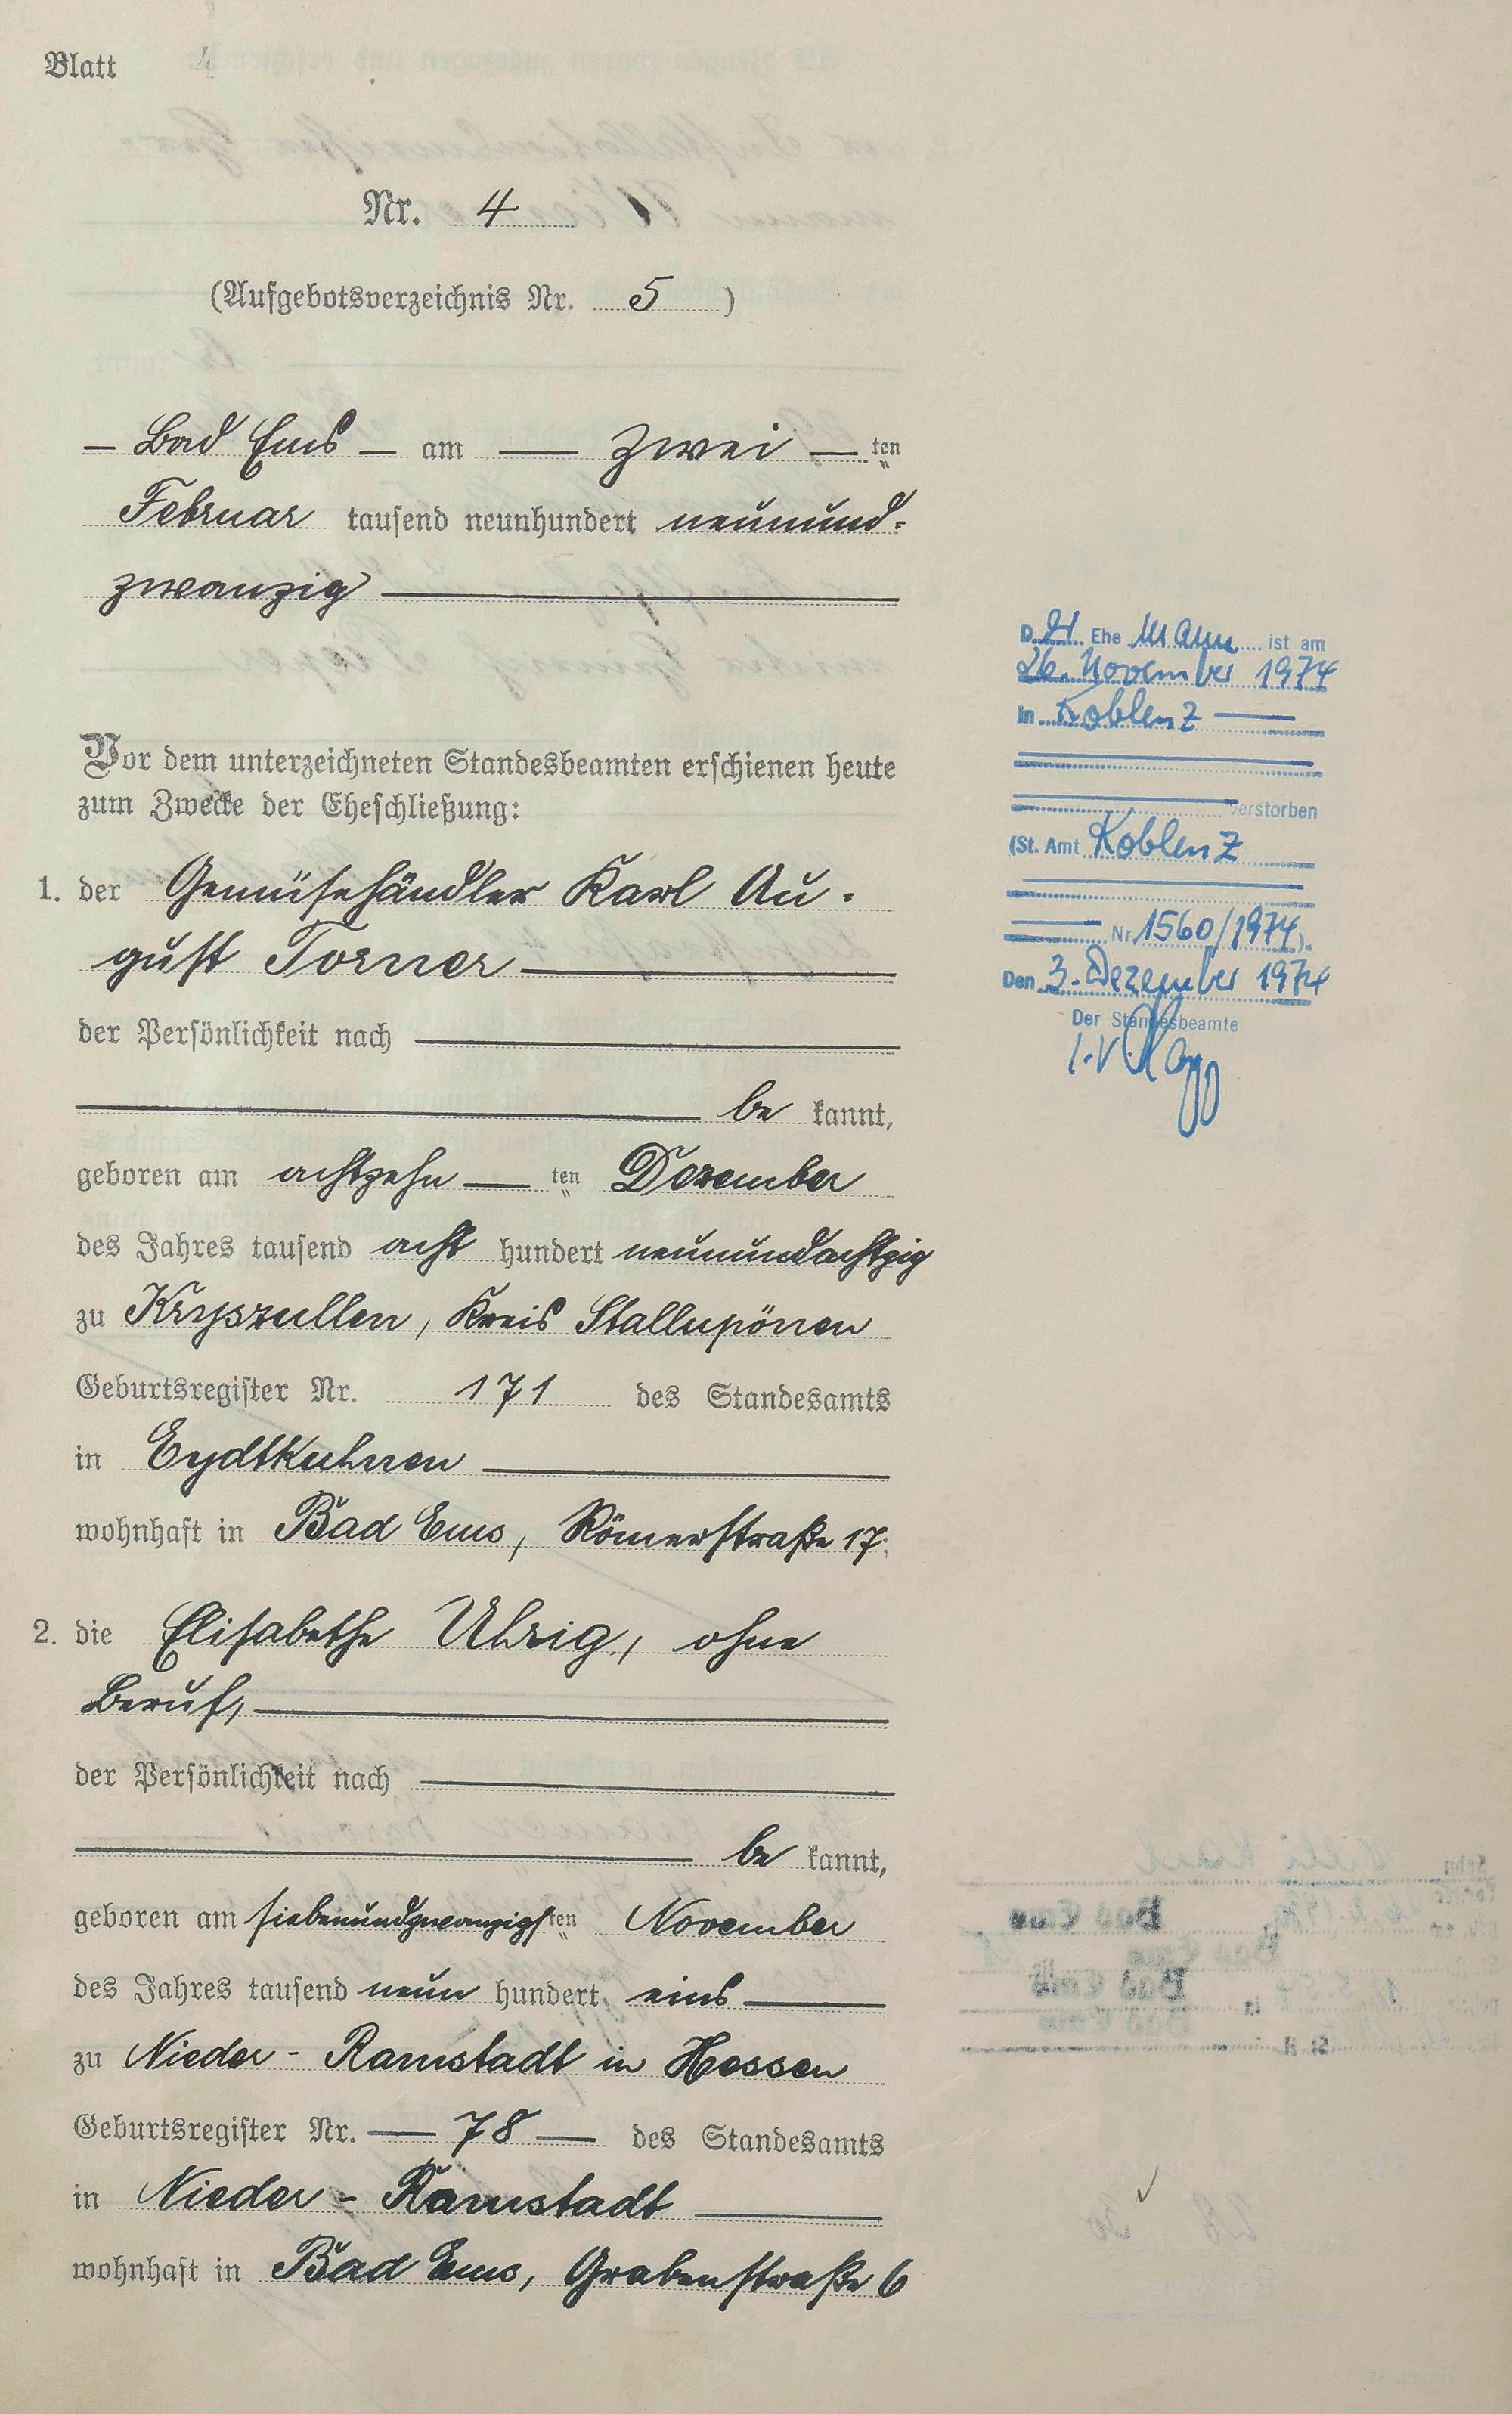 Blatt
Nr. 4
(Aufgebotsverzeichnis Nr. 5)
— Bad Ems — am — zwei — ten
Februar tausend neunhundert neunund-
zwanzig
Vor dem unterzeichneten Standesbeamten erschienen heute
zum Zwecke der Eheschließung:
1. der Gemüsehändler Karl Au-
gust Torner
der Persönlichkeit nach
be kannt,
geboren am achtzehn — ten Dezember
des Jahres tausend acht hundert neunundachtzig
zu Kryszullen, Kreis Stallupönen
Geburtsregister Nr. 171 des Standesamts
in Eydtkuhnen
wohnhaft in Bad Ems, Römerstraße 17.
2. die Elisabethe Uhrig, ohne
Beruf,
der Persönlichkeit nach
be kannt,
geboren am siebenundzwanzigsten November
des Jahres tausend neun hundert eins
zu Nieder-Ramstadt in Hessen
Geburtsregister Nr. — 78 — des Standesamts
in Nieder-Ramstadt
wohnhaft in Bad Ems, Grabenstraße 6
D. Ehe Mann ist am
26. November 1974
in Koblenz
verstorben
(St. Amt Koblenz
Nr. 1560/1974).
Den 3. Dezember 1974
Der Standesbeamte
I.V.